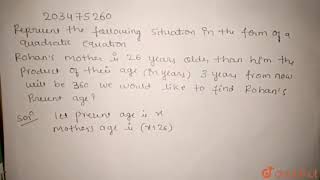 203475260
Represent the following situation in the form of a
quadratic equation
Rohan's mother is 26 years older than him the
product of their age (in years) 3 years from now
will be 360 we would like to find Rohan's
Present age?
Solⁿ let present age is x
mothers age is (x+26)
doubtnut